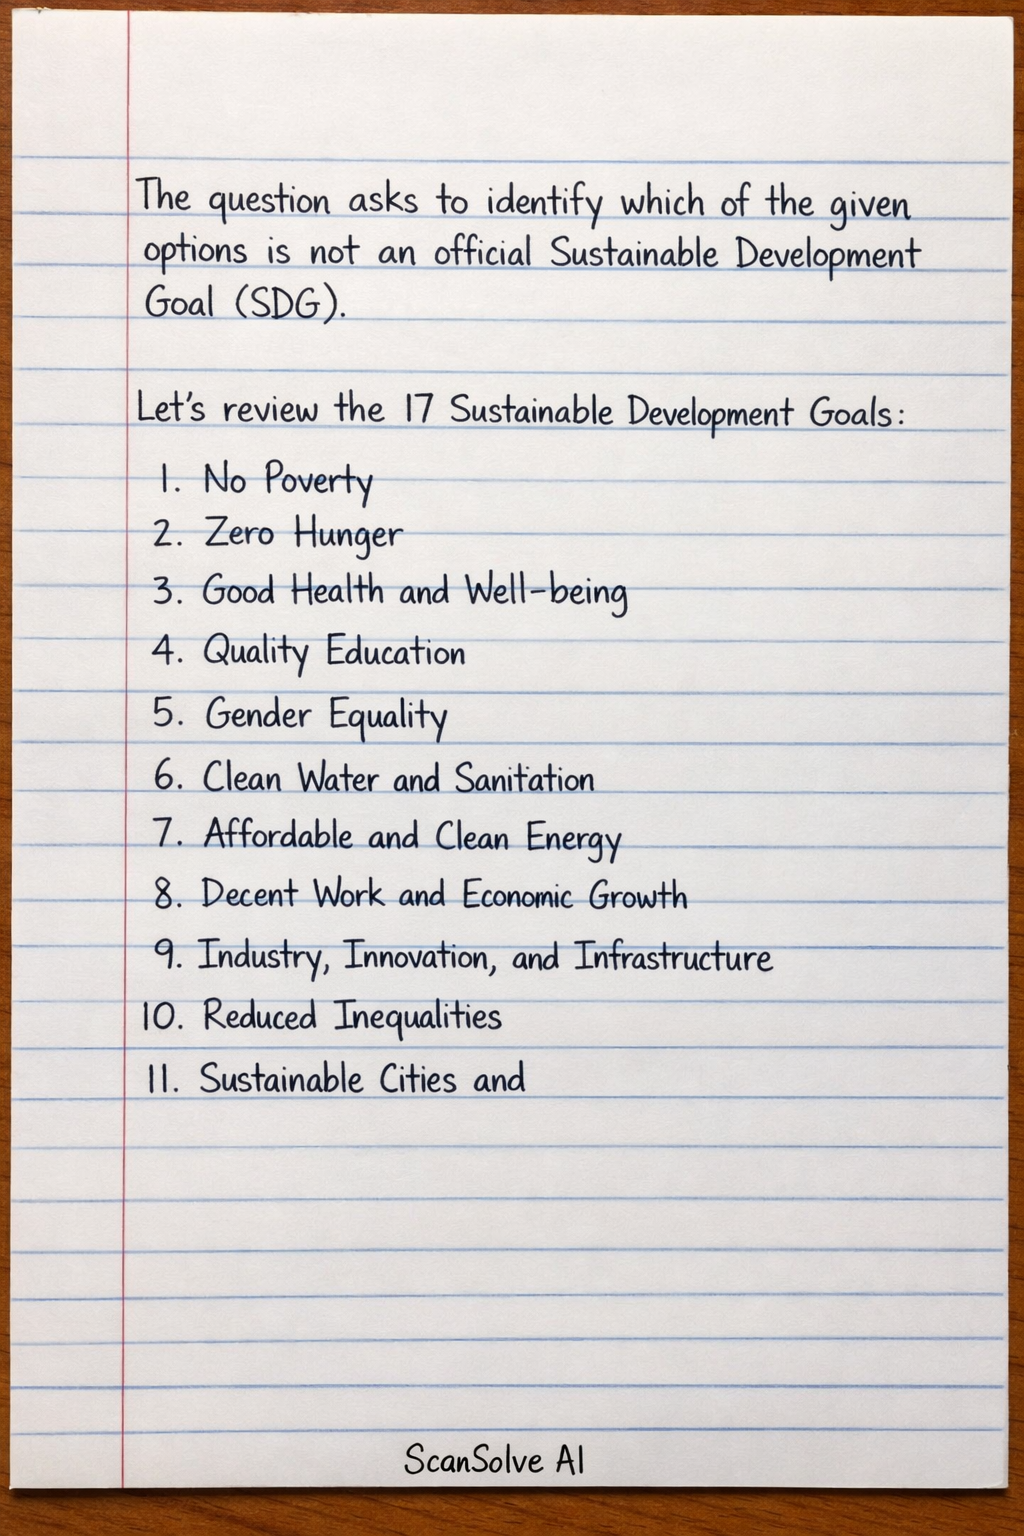 The question asks to identify which of the given
options is not an official Sustainable Development
Goal (SDG).
Let's review the 17 Sustainable Development Goals:
1. No Poverty
2. Zero Hunger
3. Good Health and Well-being
4. Quality Education
5. Gender Equality
6. Clean Water and Sanitation
7. Affordable and Clean Energy
8. Decent Work and Economic Growth
9. Industry, Innovation, and Infrastructure
10. Reduced Inequalities
11. Sustainable Cities and
ScanSolve AI